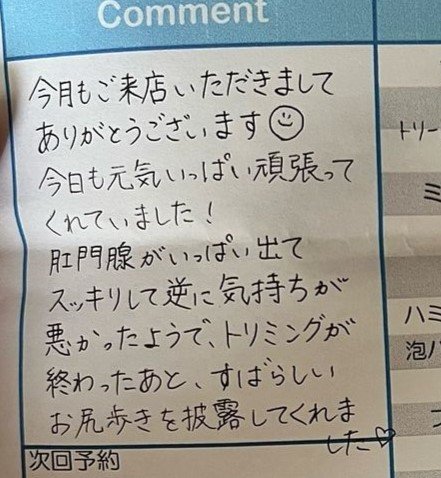 Comment
今月もご来店いただきまして
ありがとうございます☺
今日も元気いっぱい頑張って
くれていました！
肛門腺がいっぱい出て
スッキリして逆に気持ちが
悪かったようで、トリミングが
終わったあと、すばらしい
お尻歩きを披露してくれま
した♡
次回予約
トリー
ミ
ハミ
泡パ